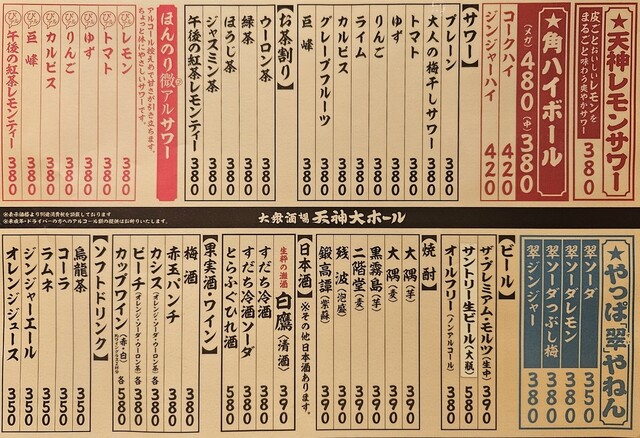 ★天神レモンサワー
皮ごとおいしいレモンを
まるごと味わう爽やかサワー
380
★角ハイボール
(メガ)480(中)380
コークハイ 420
ジンジャーハイ 420
【サワー】
プレーン 380
大人の梅干しサワー 380
トマト 380
ゆず 380
ライム 380
カルピス 380
りんご 380
グレープフルーツ 380
巨峰 380
【お茶割り】
ウーロン茶 380
緑茶 380
ほうじ茶 380
ジャスミン茶 380
ほんのり微アルサワー
アルコール控えめで甘さが引き立ちます。
ちょっと体にやさしいサワーです。
レモン 380
トマト 380
ゆず 380
りんご 380
カルピス 380
巨峰 380
午後の紅茶レモンティー 380
※表示価格より別途消費税を頂戴しております
※未成年・ドライバーの方へのアルコール類の提供はお断りいたします。
大衆酒場 天神大ホール
★やっぱ「翠」やねん
翠ソーダ 350
翠ソーダレモン 350
翠ソーダつぶし梅 380
翠ジンジャー 380
【ビール】
ザ・プレミアム・モルツ(生中) 390
サントリー生ビール(大瓶) 580
オールフリー(ノンアルコール) 380
【焼酎】
大隅(芋) 390
大隅(麦) 390
黒霧島(芋) 390
二階堂(麦) 390
残波(泡盛) 390
鍛高譚(紫蘇) 390
【日本酒】※その他日本酒あります。
生粋の灘酒 白鷹(清酒) 390
すだち冷酒 580
すだち冷酒ソーダ 580
とらふぐひれ酒 580
【果実酒・ワイン】
梅酒 380
赤玉パンチ 380
カシス(オレンジ・ソーダ・ウーロン茶)各380
ピーチ(オレンジ・ソーダ・ウーロン茶)各380
カップワイン(赤・白)各580
【ソフトドリンク】
烏龍茶 350
コーラ 350
ラムネ 350
ジンジャーエール 350
オレンジジュース 350